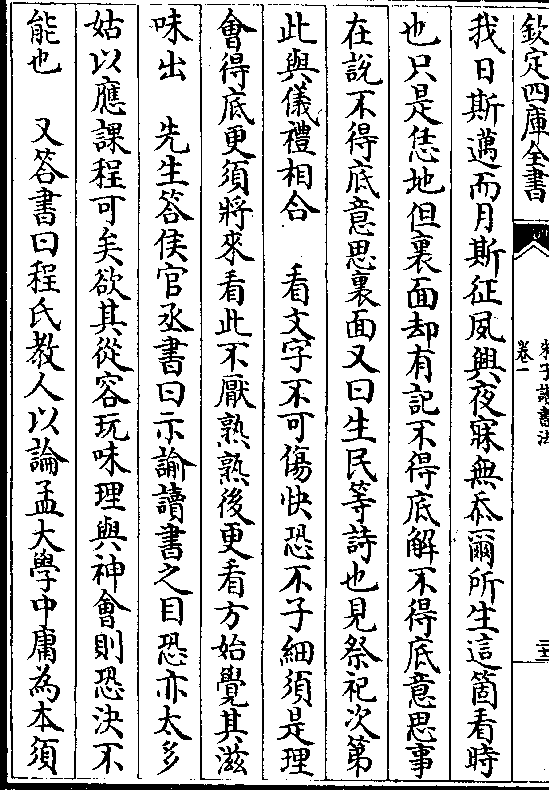 欽定四庫全書
朱子讀書法
卷一
三十五
我日斯邁而月斯征夙興夜寐無忝爾所生這箇看時
也只是恁地但裏面却有記不得底解不得底意思事
在說不得底意思裏面又曰生民等詩也見祭祀次第
此與儀禮相合　看文字不可傷快恐不子細須是理
會得底更須將來看此不厭熟熟後更看方始覺其滋
味出　先生答侯官丞書曰示諭讀書之目恐亦太多
姑以應課程可矣欲其從容玩味理與神會則恐決不
能也　又答書曰程氏教人以論孟大學中庸為本須